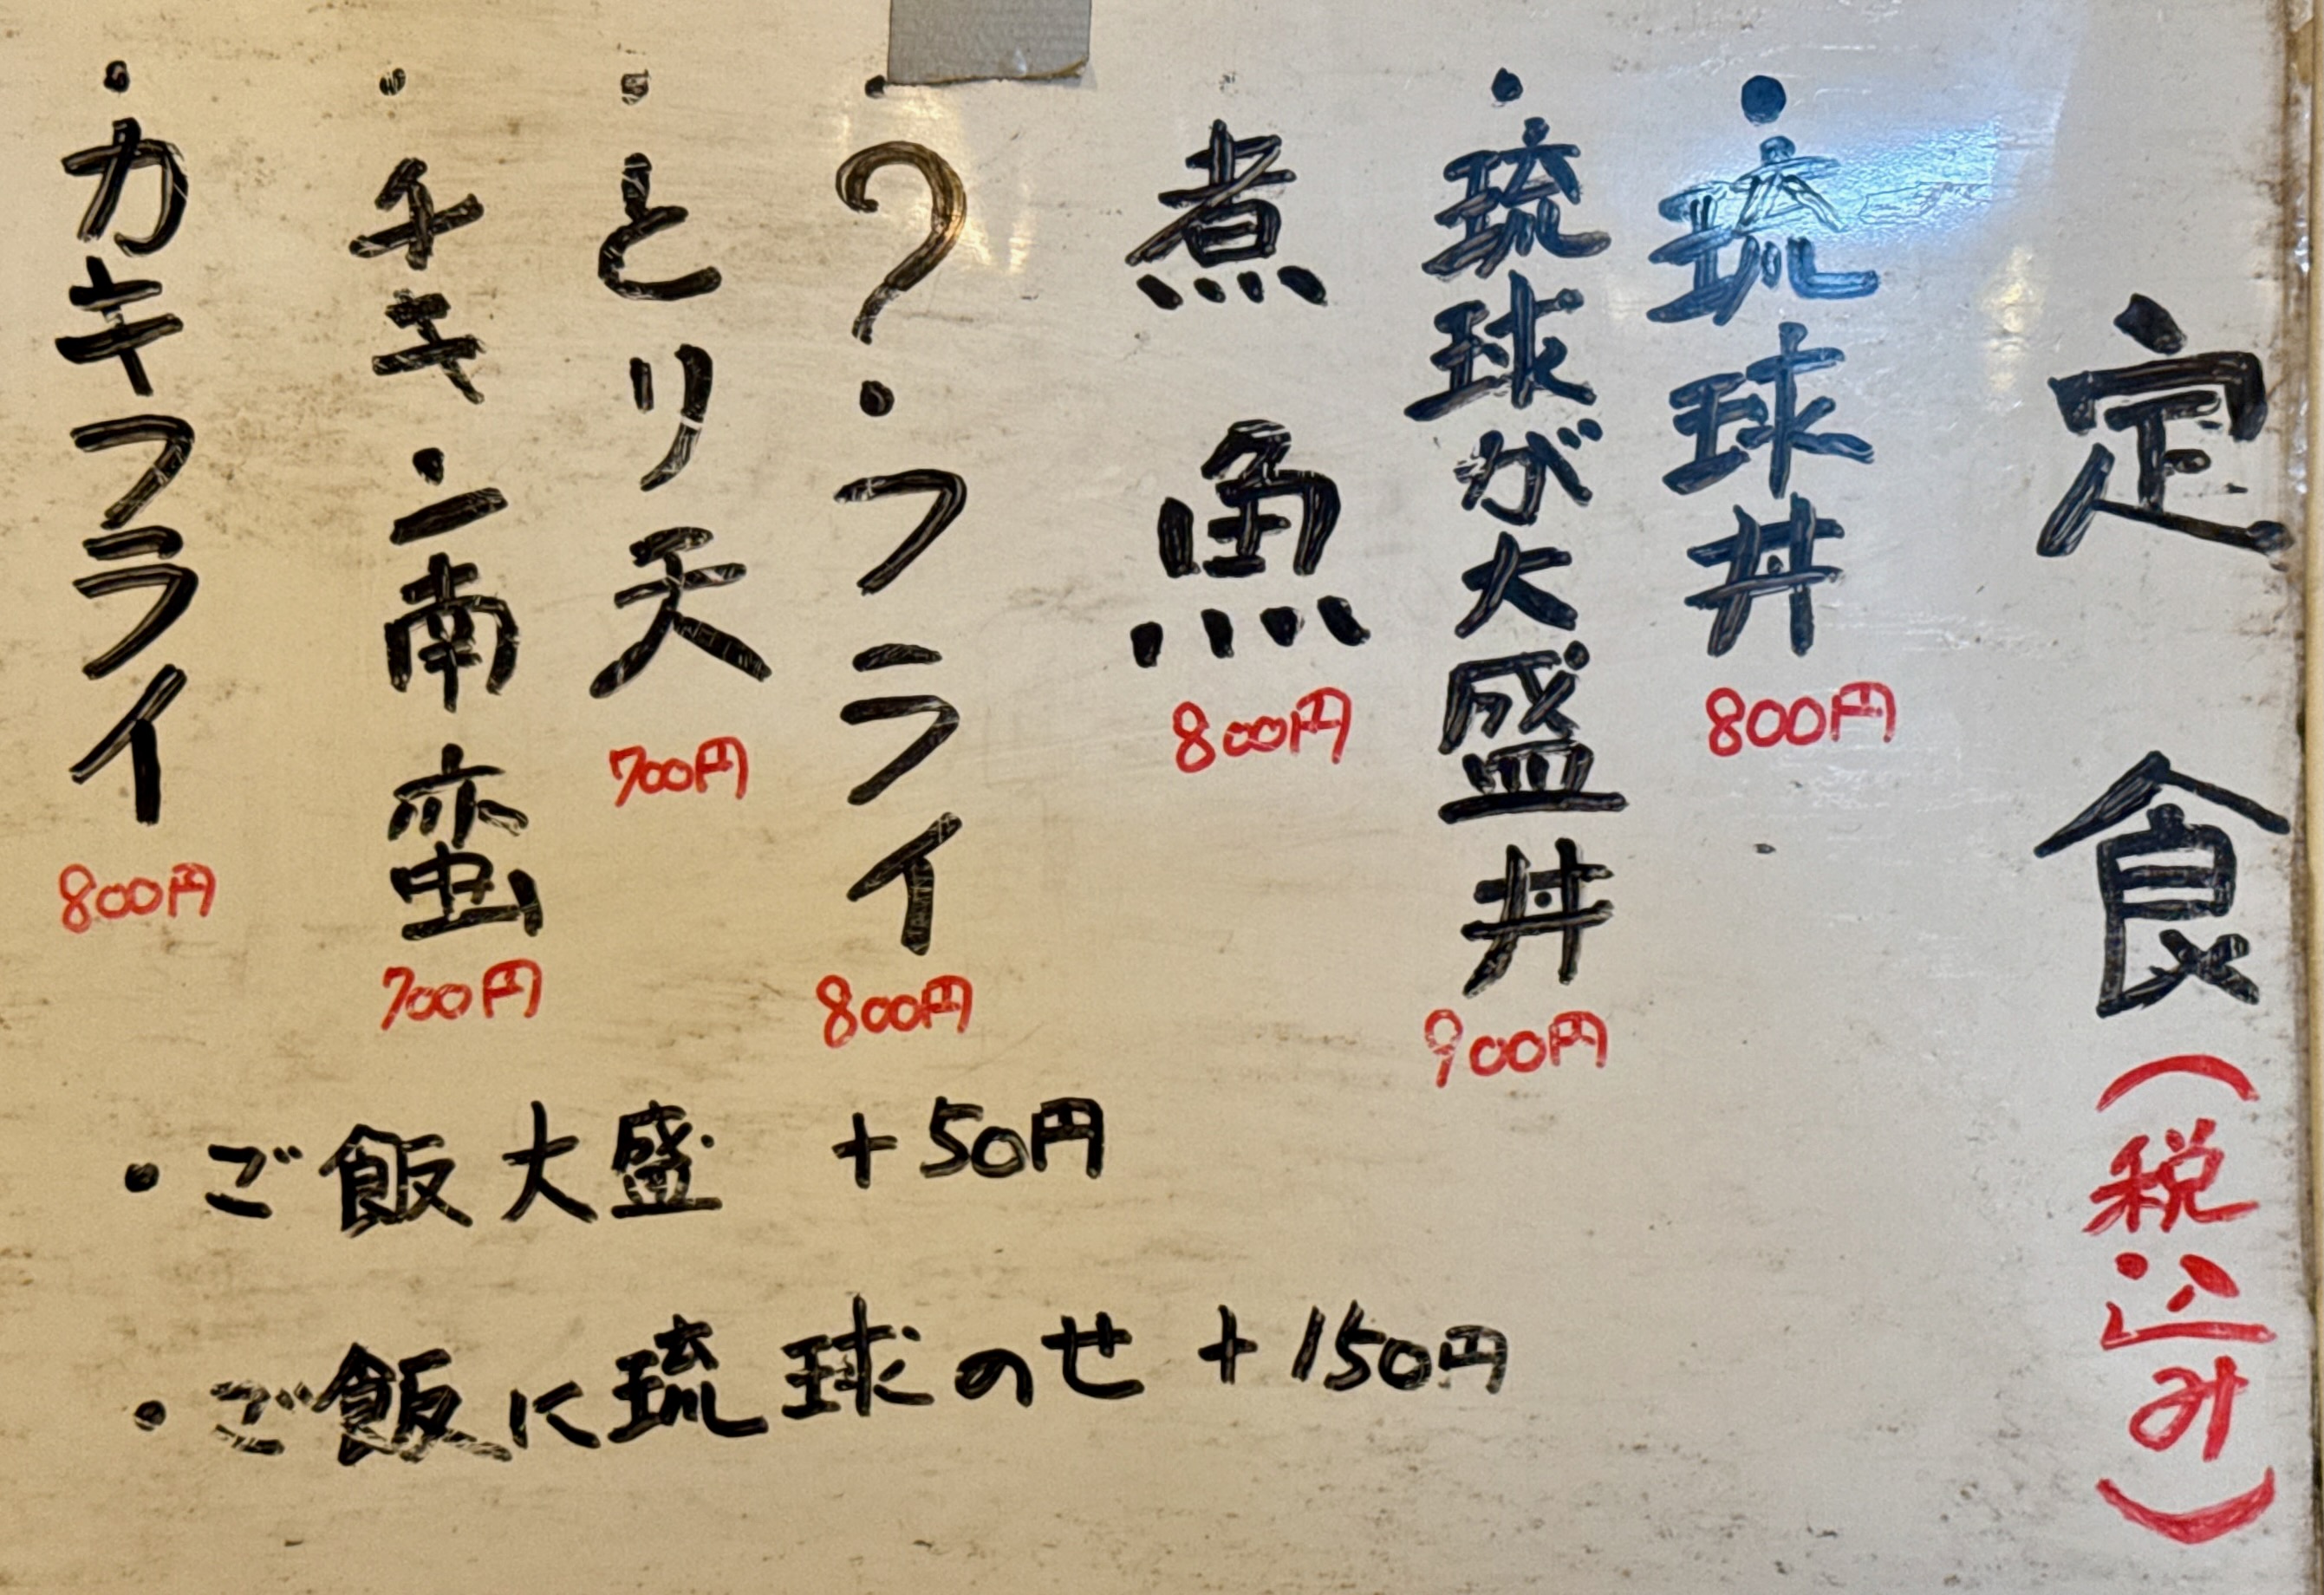 定食(税込み)
・琉球丼 800円
・琉球が大盛丼 900円
煮魚 800円
・?・フライ 800円
・とり天 700円
・チキン南蛮 700円
・カキフライ 800円
・ご飯大盛 +50円
・ご飯に琉球のせ +150円